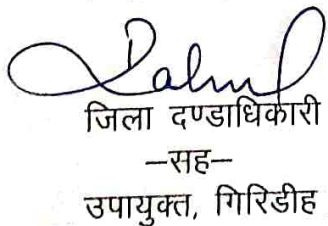 जिला दण्डाधिकारी
–सह–
उपायुक्त, गिरिडीह